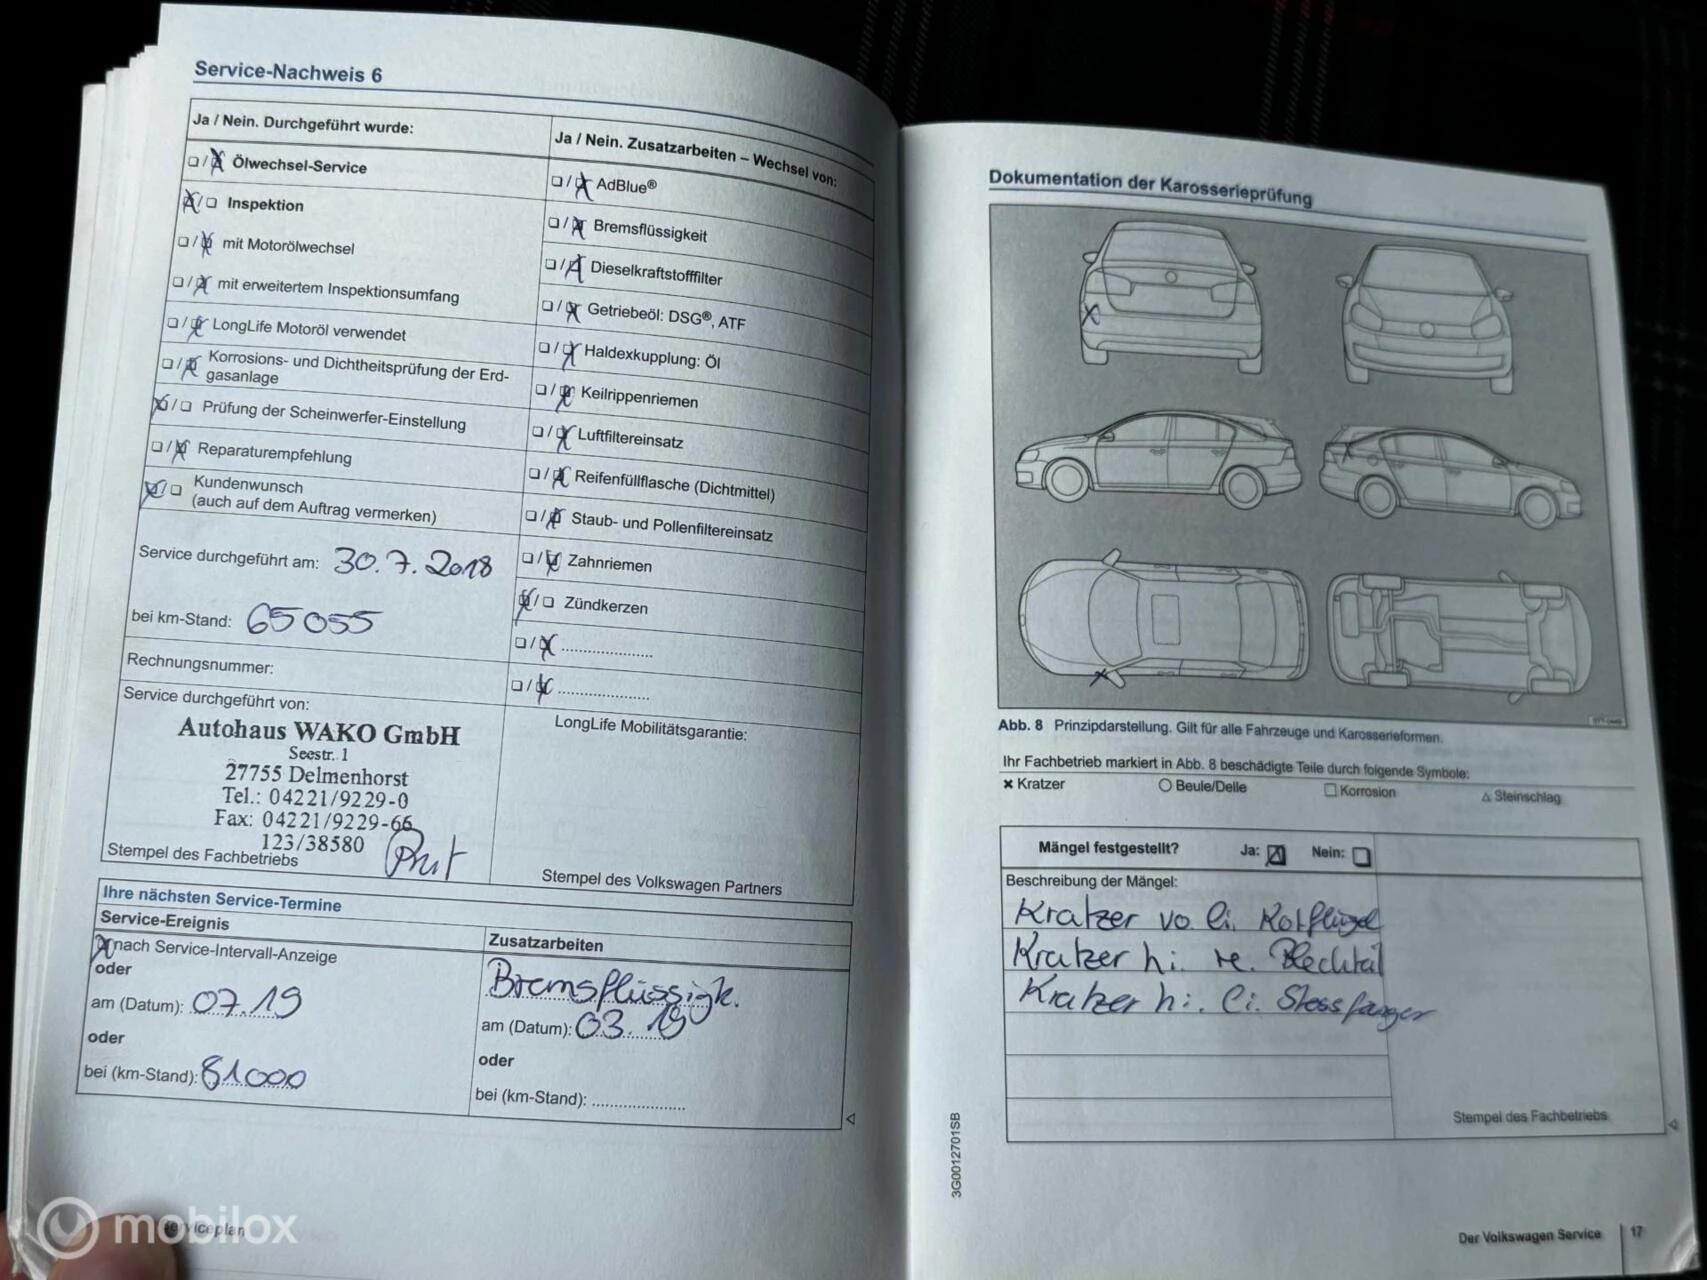 Service-Nachweis 6
Ja / Nein. Durchgeführt wurde:
❏ / ❏ Ölwechsel-Service
❏ / ❏ Inspektion
❏ / ❏ mit Motorölwechsel
❏ / ❏ mit erweitertem Inspektionsumfang
❏ / ❏ LongLife Motoröl verwendet
❏ / ❏ Korrosions- und Dichtheitsprüfung der Erd-
gasanlage
❏ / ❏ Prüfung der Scheinwerfer-Einstellung
❏ / ❏ Reparaturempfehlung
❏ / ❏ Kundenwunsch
(auch auf dem Auftrag vermerken)
Service durchgeführt am: 30.7.2018
bei km-Stand: 65055
Rechnungsnummer:
Service durchgeführt von:
Autohaus WAKO GmbH
Seestr. 1
27755 Delmenhorst
Tel.: 04221/9229-0
Fax: 04221/9229-66
123/38580
Stempel des Fachbetriebs
Ja / Nein. Zusatzarbeiten – Wechsel von:
❏ / ❏ AdBlue®
❏ / ❏ Bremsflüssigkeit
❏ / ❏ Dieselkraftstofffilter
❏ / ❏ Getriebeöl: DSG®, ATF
❏ / ❏ Haldexkupplung: Öl
❏ / ❏ Keilrippenriemen
❏ / ❏ Luftfiltereinsatz
❏ / ❏ Reifenfüllflasche (Dichtmittel)
❏ / ❏ Staub- und Pollenfiltereinsatz
❏ / ❏ Zahnriemen
❏ / ❏ Zündkerzen
❏ / ❏ .....................
❏ / ❏ .....................
LongLife Mobilitätsgarantie:
Stempel des Volkswagen Partners
Ihre nächsten Service-Termine
Service-Ereignis
nach Service-Intervall-Anzeige
oder
am (Datum): 07.19
oder
bei (km-Stand): 81000
Zusatzarbeiten
Bremsflüssigk.
am (Datum): 03.19
oder
bei (km-Stand): .....................
Serviceplan
mobilox
Dokumentation der Karosserieprüfung
Abb. 8 Prinzipdarstellung. Gilt für alle Fahrzeuge und Karosserieformen.
Ihr Fachbetrieb markiert in Abb. 8 beschädigte Teile durch folgende Symbole:
× Kratzer ○ Beule/Delle □ Korrosion △ Steinschlag
Mängel festgestellt? Ja: ☒ Nein: ❏
Beschreibung der Mängel:
Kratzer vo. li. Kotflügel
Kratzer hi. re. Blechteil
Kratzer hi. li. Stossfänger
Stempel des Fachbetriebs
3G0012701SB
Der Volkswagen Service 17